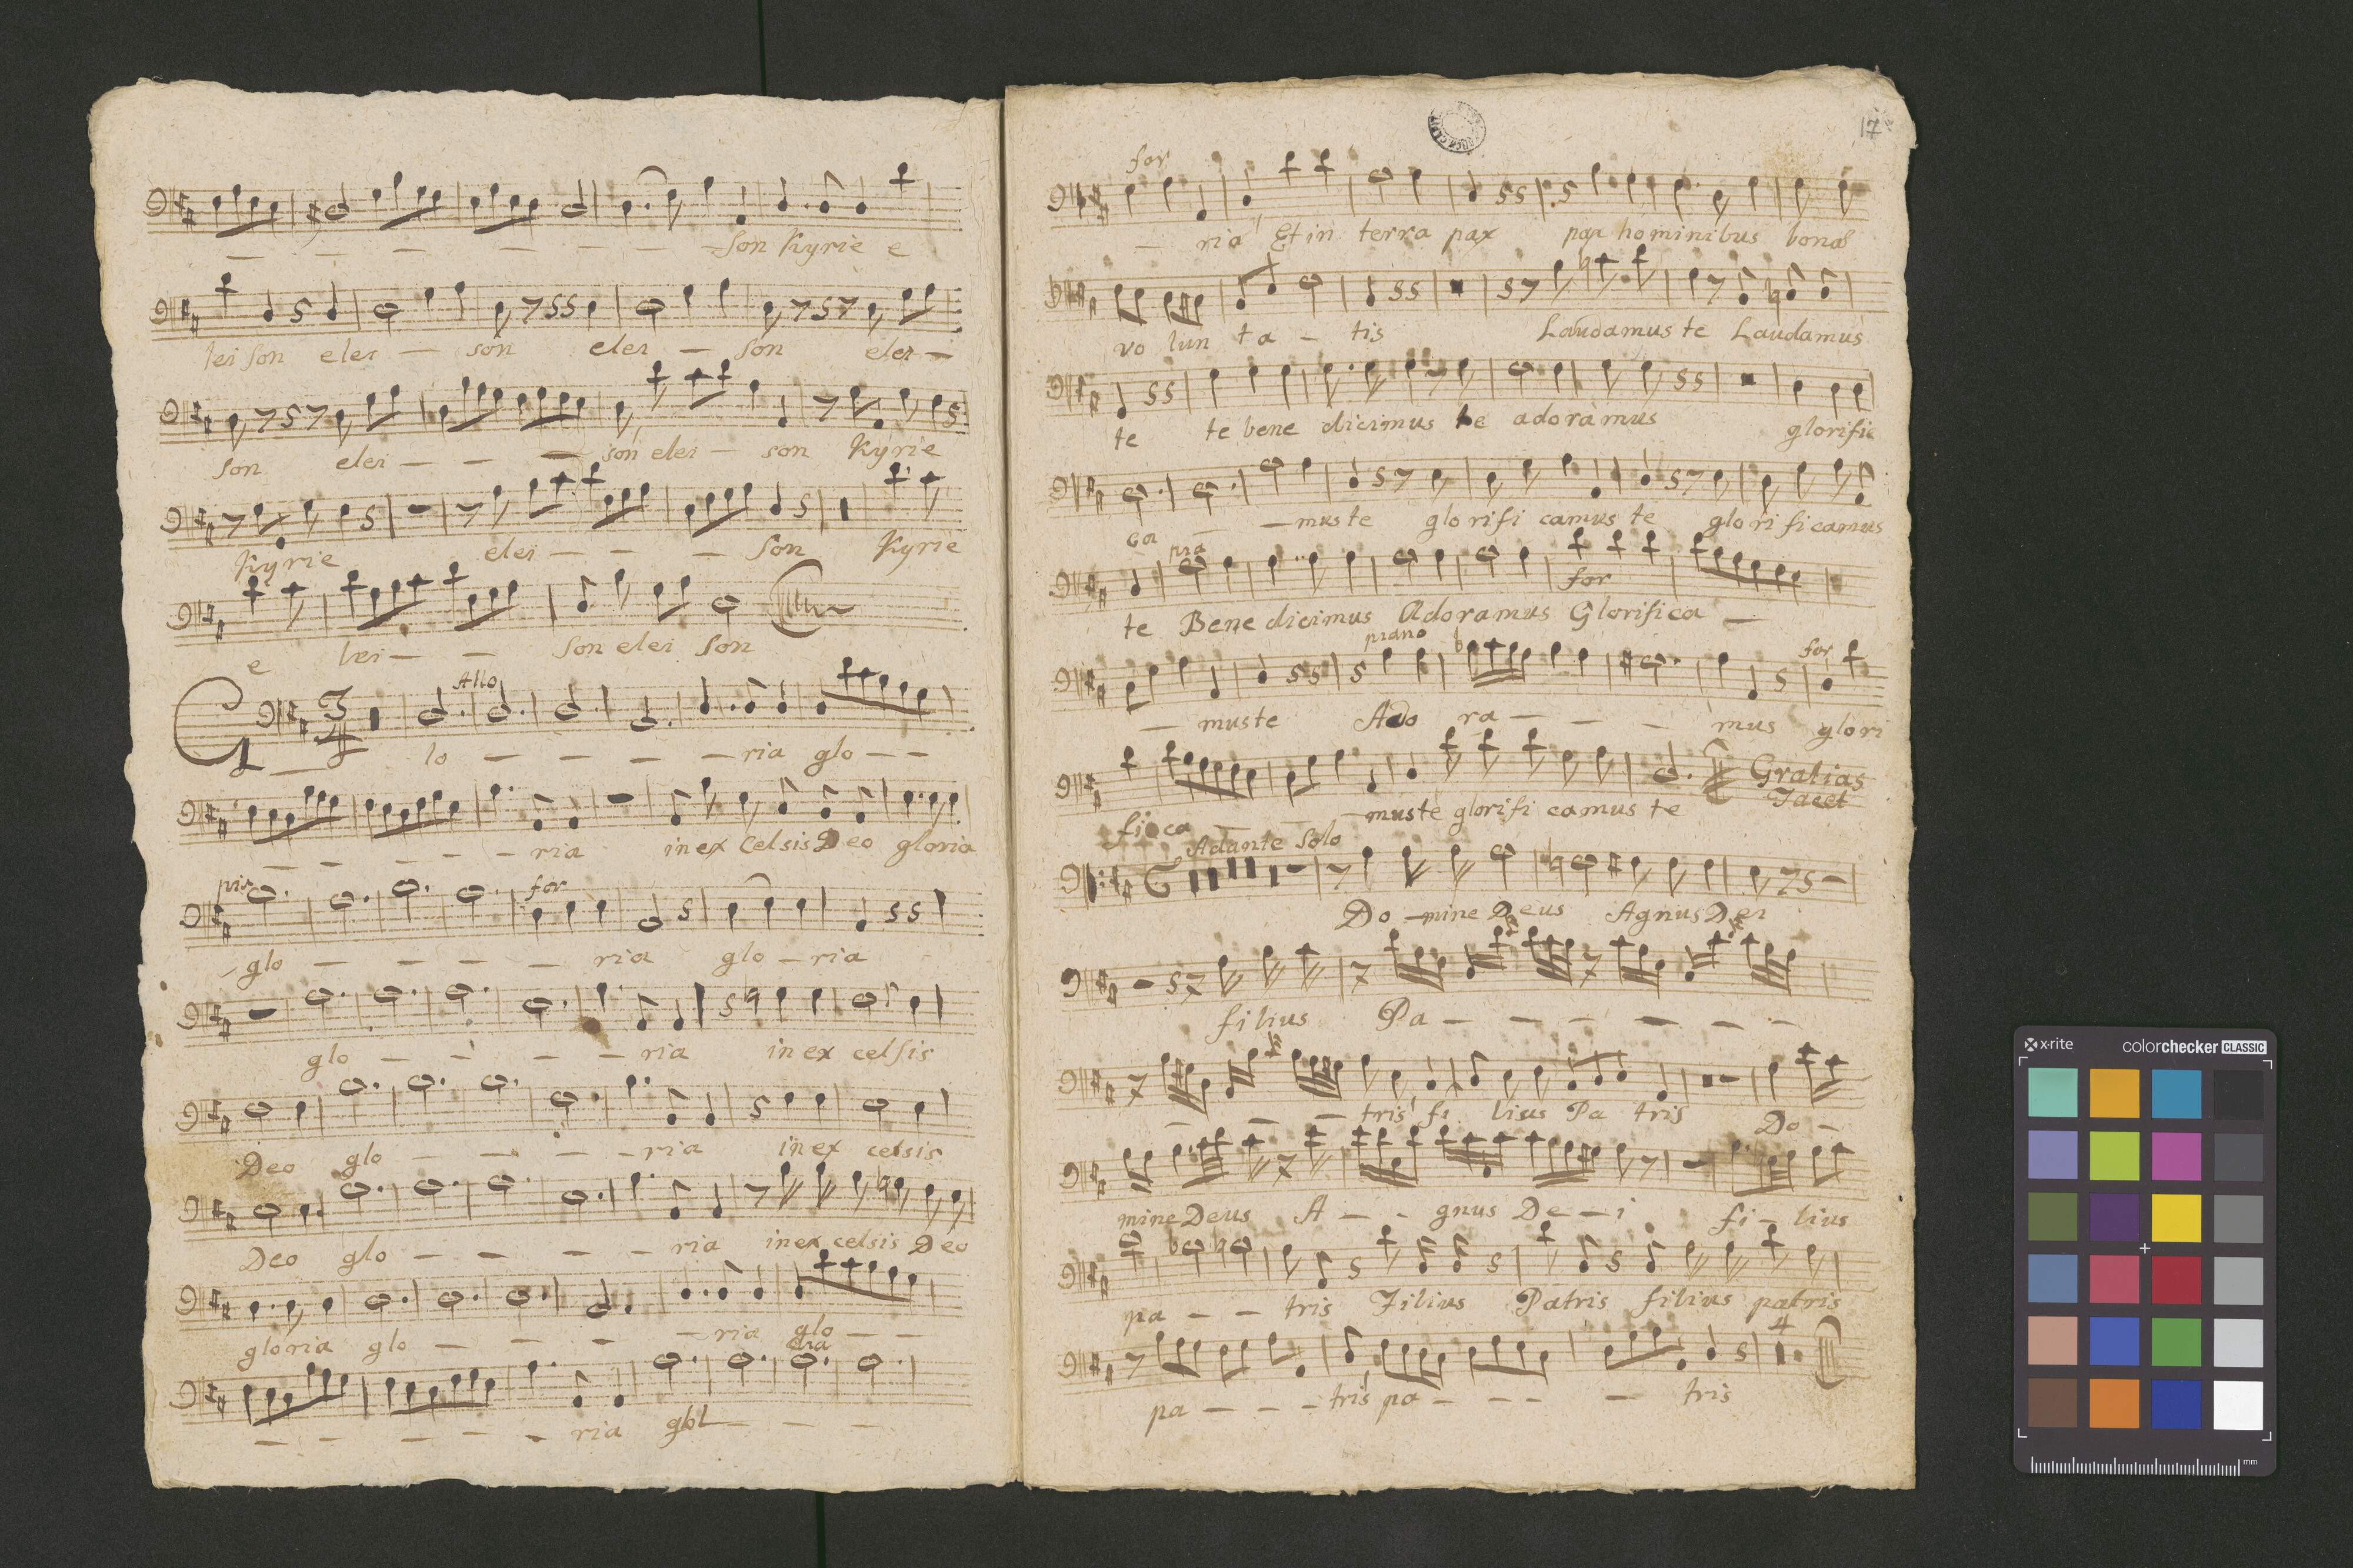 son Kyrie e
lei son elei son elei son elei
son elei son elei son Kyrie
Kyrie elei son Kyrie
e lei son elei son
Allo
G lo ria glo
ria in ex Celsis Deo gloria
pia for
glo ria glo ria
glo ria in ex celsis
Deo glo ria in ex celsis
Deo glo ria in ex celsis Deo
gloria glo ria glo
pia
ria glo
17
for
ria Et in terra pax pax hominibus bonæ
vo lun ta tis Laudamus te Laudamus
te te bene dicimus te adoramus glorifi
ca mus te glo rifi camus te glo ri ficamus
pia for
te Bene dicimus Adoramus Glorifica
piano for
mus te Ado ra mus glori
Gratias
Tacet
fi ca mus te glorifi camus te
Adante Solo
Do mine Deus Agnus Dei
filius Pa
tris fi lius Pa tris Do
mine Deus A gnus De i fi lius
pa tris Filius Patris filius patris
4
pa tris pa tris
x-rite colorchecker CLASSIC
mm